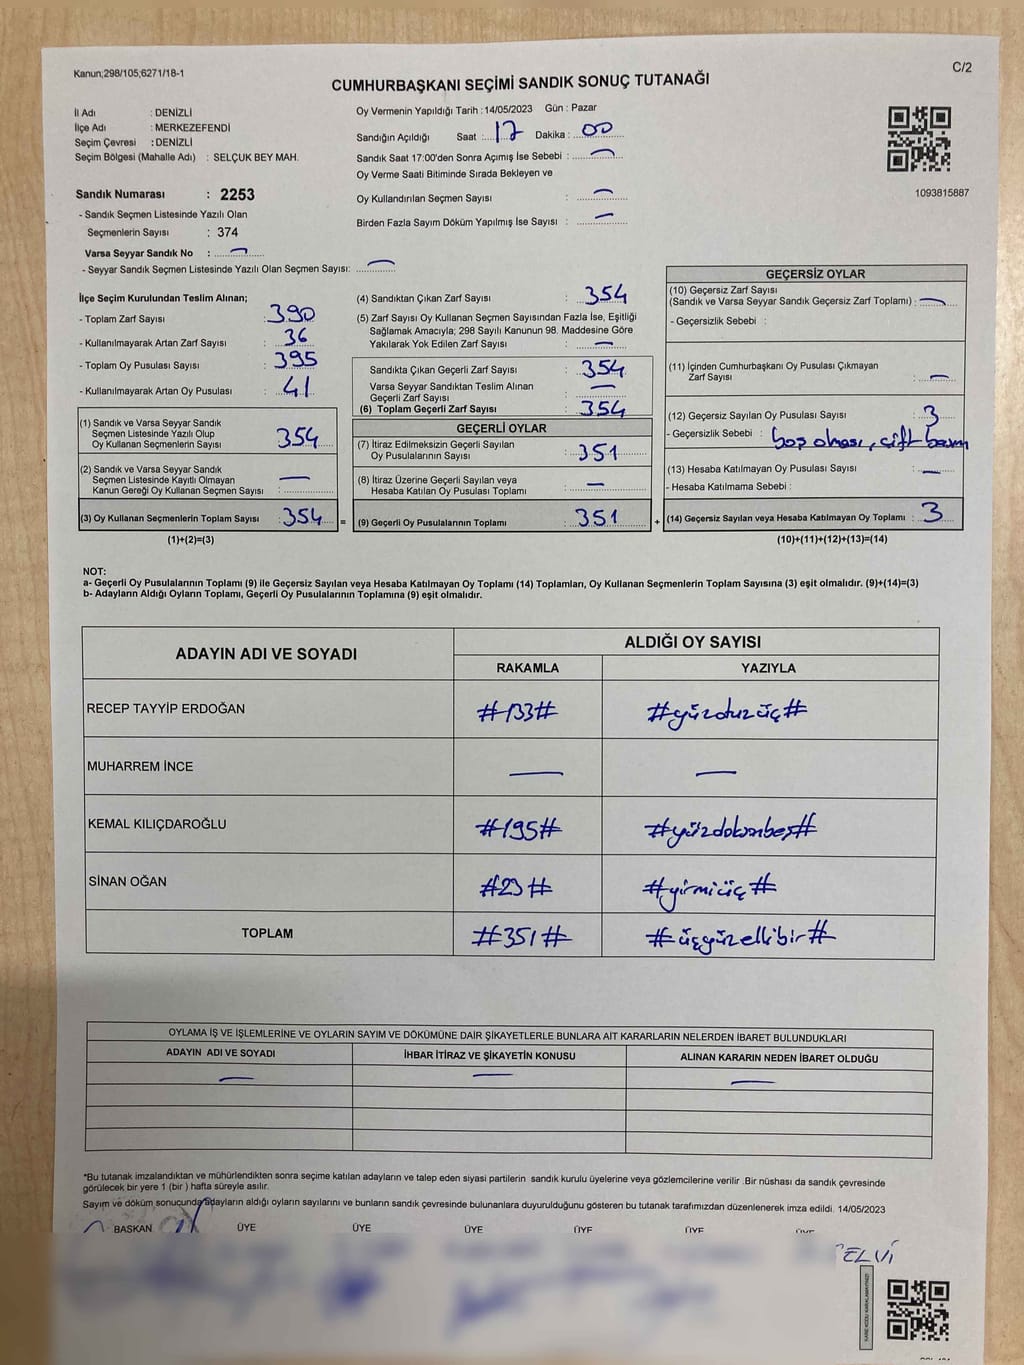 Kanun;298/105;6271/18-1
C/2
CUMHURBAŞKANI SEÇİMİ SANDIK SONUÇ TUTANAĞI
İl Adı : DENİZLİ
İlçe Adı : MERKEZEFENDİ
Seçim Çevresi : DENİZLİ
Seçim Bölgesi (Mahalle Adı) : SELÇUK BEY MAH.
Oy Vermenin Yapıldığı Tarih : 14/05/2023 Gün : Pazar
Sandığın Açıldığı Saat : 17 Dakika : 00
Sandık Saat 17:00'den Sonra Açımış İse Sebebi : —
Oy Verme Saati Bitiminde Sırada Bekleyen ve
Oy Kullandırılan Seçmen Sayısı : —
Birden Fazla Sayım Döküm Yapılmış İse Sayısı : —
1093815887
Sandık Numarası : 2253
- Sandık Seçmen Listesinde Yazılı Olan
Seçmenlerin Sayısı : 374
Varsa Seyyar Sandık No : —
- Seyyar Sandık Seçmen Listesinde Yazılı Olan Seçmen Sayısı: —
İlçe Seçim Kurulundan Teslim Alınan;
- Toplam Zarf Sayısı : 390
- Kullanılmayarak Artan Zarf Sayısı : 36
- Toplam Oy Pusulası Sayısı : 395
- Kullanılmayarak Artan Oy Pusulası : 41
(1) Sandık ve Varsa Seyyar Sandık
Seçmen Listesinde Yazılı Olup
Oy Kullanan Seçmenlerin Sayısı : 354
(2) Sandık ve Varsa Seyyar Sandık
Seçmen Listesinde Kayıtlı Olmayan
Kanun Gereği Oy Kullanan Seçmen Sayısı : —
(3) Oy Kullanan Seçmenlerin Toplam Sayısı : 354 =
(1)+(2)=(3)
(4) Sandıktan Çıkan Zarf Sayısı : 354
(5) Zarf Sayısı Oy Kullanan Seçmen Sayısından Fazla İse, Eşitliği
Sağlamak Amacıyla; 298 Sayılı Kanunun 98. Maddesine Göre
Yakılarak Yok Edilen Zarf Sayısı : —
Sandıkta Çıkan Geçerli Zarf Sayısı : 354
Varsa Seyyar Sandıktan Teslim Alınan
Geçerli Zarf Sayısı : —
(6) Toplam Geçerli Zarf Sayısı : 354
GEÇERLİ OYLAR
(7) İtiraz Edilmeksizin Geçerli Sayılan
Oy Pusulalarının Sayısı : 351
(8) İtiraz Üzerine Geçerli Sayılan veya
Hesaba Katılan Oy Pusulası Toplamı : —
(9) Geçerli Oy Pusulalarının Toplamı : 351 +
GEÇERSİZ OYLAR
(10) Geçersiz Zarf Sayısı
(Sandık ve Varsa Seyyar Sandık Geçersiz Zarf Toplamı) : —
- Geçersizlik Sebebi :
(11) İçinden Cumhurbaşkanı Oy Pusulası Çıkmayan
Zarf Sayısı : —
(12) Geçersiz Sayılan Oy Pusulası Sayısı : 3
- Geçersizlik Sebebi : boş olması, çift basım
(13) Hesaba Katılmayan Oy Pusulası Sayısı : —
- Hesaba Katılmama Sebebi :
(14) Geçersiz Sayılan veya Hesaba Katılmayan Oy Toplamı : 3
(10)+(11)+(12)+(13)=(14)
NOT:
a- Geçerli Oy Pusulalarının Toplamı (9) ile Geçersiz Sayılan veya Hesaba Katılmayan Oy Toplamı (14) Toplamları, Oy Kullanan Seçmenlerin Toplam Sayısına (3) eşit olmalıdır. (9)+(14)=(3)
b- Adayların Aldığı Oyların Toplamı, Geçerli Oy Pusulalarının Toplamına (9) eşit olmalıdır.
ADAYIN ADI VE SOYADI
ALDIĞI OY SAYISI
RAKAMLA YAZIYLA
RECEP TAYYİP ERDOĞAN #133# #yüzotuzüç#
MUHARREM İNCE — —
KEMAL KILIÇDAROĞLU #195# #yüzdoksanbeş#
SİNAN OĞAN #23# #yirmiüç#
TOPLAM #351# #üçyüzellibir#
OYLAMA İŞ VE İŞLEMLERİNE VE OYLARIN SAYIM VE DÖKÜMÜNE DAİR ŞİKAYETLERLE BUNLARA AİT KARARLARIN NELERDEN İBARET BULUNDUKLARI
ADAYIN ADI VE SOYADI İHBAR İTİRAZ VE ŞİKAYETİN KONUSU ALINAN KARARIN NEDEN İBARET OLDUĞU
— — —
*Bu tutanak imzalandıktan ve mühürlendikten sonra seçime katılan adayların ve talep eden siyasi partilerin sandık kurulu üyelerine veya gözlemcilerine verilir .Bir nüshası da sandık çevresinde
görülecek bir yere 1 (bir ) hafta süreyle asılır.
Sayım ve döküm sonucunda adayların aldığı oyların sayılarını ve bunların sandık çevresinde bulunanlara duyurulduğunu gösteren bu tutanak tarafımızdan düzenlenerek imza edildi. 14/05/2023
BAŞKAN ÜYE ÜYE ÜYE ÜYE ÜYE ÜYE
ELVİ